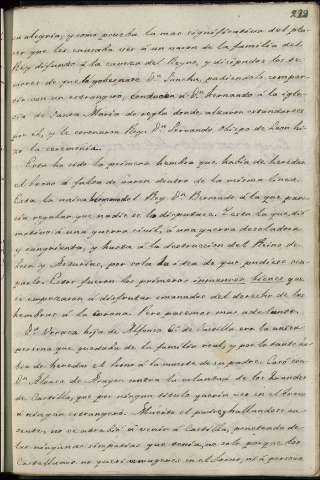 232
su alegria, y como prueba la mas significativa del pla-
cer que les causaba ver á un varon de la familia del
Rey difunto á la cabeza del Reyno, y disipados los te-
mores de que los gobernase Dª Sancha, pudiendolo compar-
tir con un estrangero, conducen á Dn Fernando á la igle-
sia de Santa Maria de regla donde alzaron estandartes
por el, y le coronaron Rey. Dn Servando Obispo de Leon hi-
zo la ceremonia.
Esta ha sido la primera hembra que habia de heredar
el trono á falta de varon dentro de la misma linea.
Esta la unica hermana del Rey Dn Bermudo á la que pare-
cia regular que nadie se lo disputase. Y esta la que dió
motivo á una guerra civil, á una guerra desoladora
y sangrienta, y hasta á la destruccion del Reino de
Leon y Asturias, por sola la idea de que pudiese ocu-
parlo. Estos fueron los primeros inmensos bienes que
se empezaron á disfrutar emanados del derecho de las
hembras á la corona. Pero pasemos mas adelante.
Dª Urraca hija de Alfonso 6º de Castilla era la unica
persona que quedaba de la familia real, y por lo tanto ha-
bia de heredar el trono á la muerte de su padre. Casó con
Dn Alonso de Aragon contra la voluntad de los Grandes
de Castilla, que por ningun titulo querian ver en el trono
á ningun estrangero. Muerto el padre, hallandose au-
sente, no se atrebió á venir á Castilla, penetrada de
las ningunas simpatias que tenia, no solo porque los
Castellanos no querian mugeres en el Trono, ni á persona